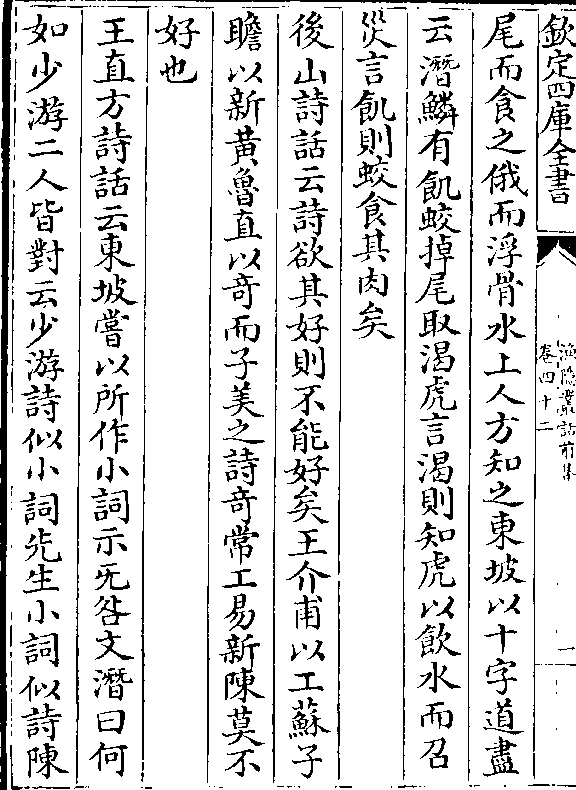 欽定四庫全書
漁隱叢話前集
卷四十二
一
尾而食之俄而浮骨水上人方知之東坡以十字道盡
云潛鱗有飢蛟掉尾取渴虎言渴則知虎以飲水而召
災言飢則蛟食其肉矣
後山詩話云詩欲其好則不能好矣王介甫以工蘇子
瞻以新黃魯直以奇而子美之詩奇常工易新陳莫不
好也
王直方詩話云東坡嘗以所作小詞示旡咎文潛曰何
如少游二人皆對云少游詩似小詞先生小詞似詩陳